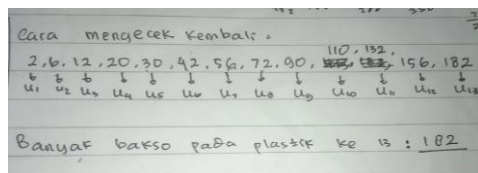 Cara mengecek kembali :
110, 132,
2, 6, 12, 20, 30, 42, 56, 72, 90, 156, 182
U₁ U₂ U₃ U₄ U₅ U₆ U₇ U₈ U₉ U₁₀ U₁₁ U₁₂ U₁₃
Banyak bakso pada plastik ke 13 : 182